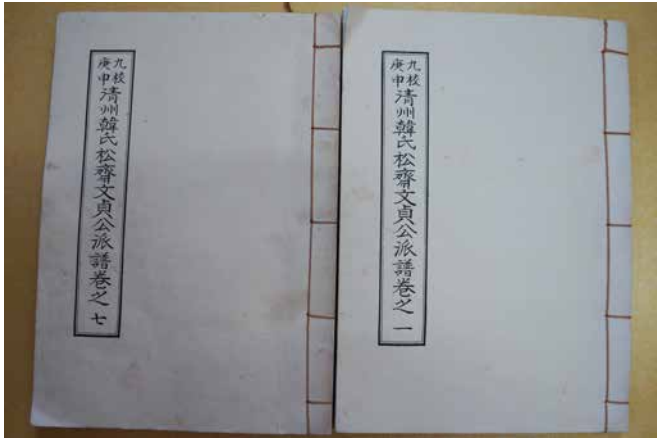 九校
庚申
清州韓氏松齋文貞公派譜卷之 七
九校
庚申
清州韓氏松齋文貞公派譜卷之 一